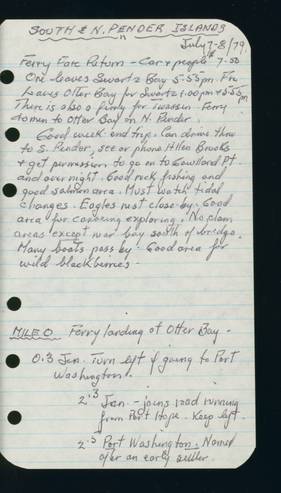 SOUTH & N. PENDER ISLANDS
July 7-8/79
Ferry Fare Return - Car + people 7.50
One leaves Swartz Bay 5:55 pm. Fri
leaves Otter Bay for Swartz 1:00 pm + 5:55 pm
There is also a ferry for Tsawassen. Ferry
comes to Otter Bay on N. Pender.
Good week end trip. Can drive thru
to S. Pender, see or phone Brooks
+ get permission to go on to Gowlland Pt
and over night. Good rock fishing and
good salmon area. Must watch tidal
changes. Eagles nest close by. Good
area for canoeing exploring. No clam
areas except near bay south of bridge.
Many boats pass by. Good area for
wild blackberries
MILE 0 Ferry landing at Otter Bay -
0.3 Jan. Turn left if going to Port
Washington.
2.3 Jan. - joins road running
from Port Hope. Keep left.
2.5 Port Washington. Named
after an early settler.